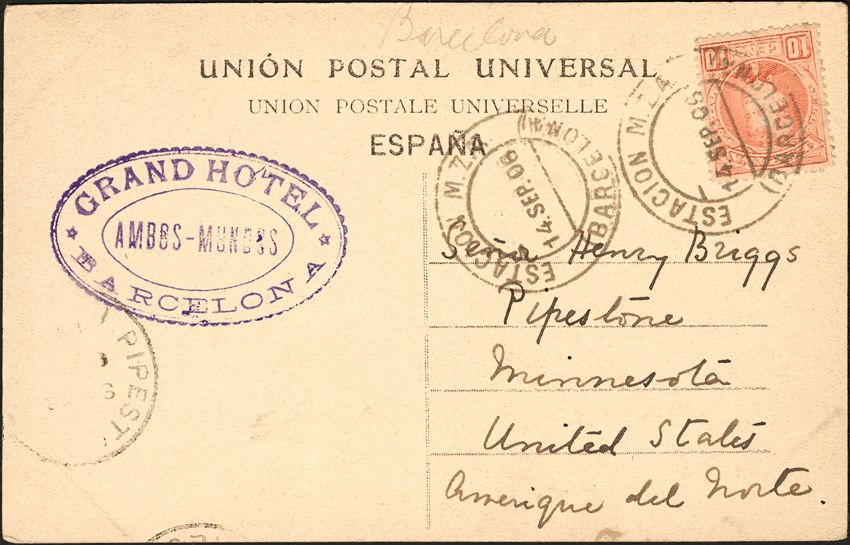 Barcelona
UNIÓN POSTAL UNIVERSAL
UNION POSTALE UNIVERSELLE
ESPAÑA
GRAND HOTEL
AMBOS-MUNDOS
BARCELONA
10 CENT 10
ESTACION M.Z.A.
14 SEP 06
(BARCELONA)
ESTACION M.Z.
14 SEP 06
BARCELONA
Señor Henry Briggs
Pipestone
Minnesota
United States
Amerique del Norte.
PIPEST
5